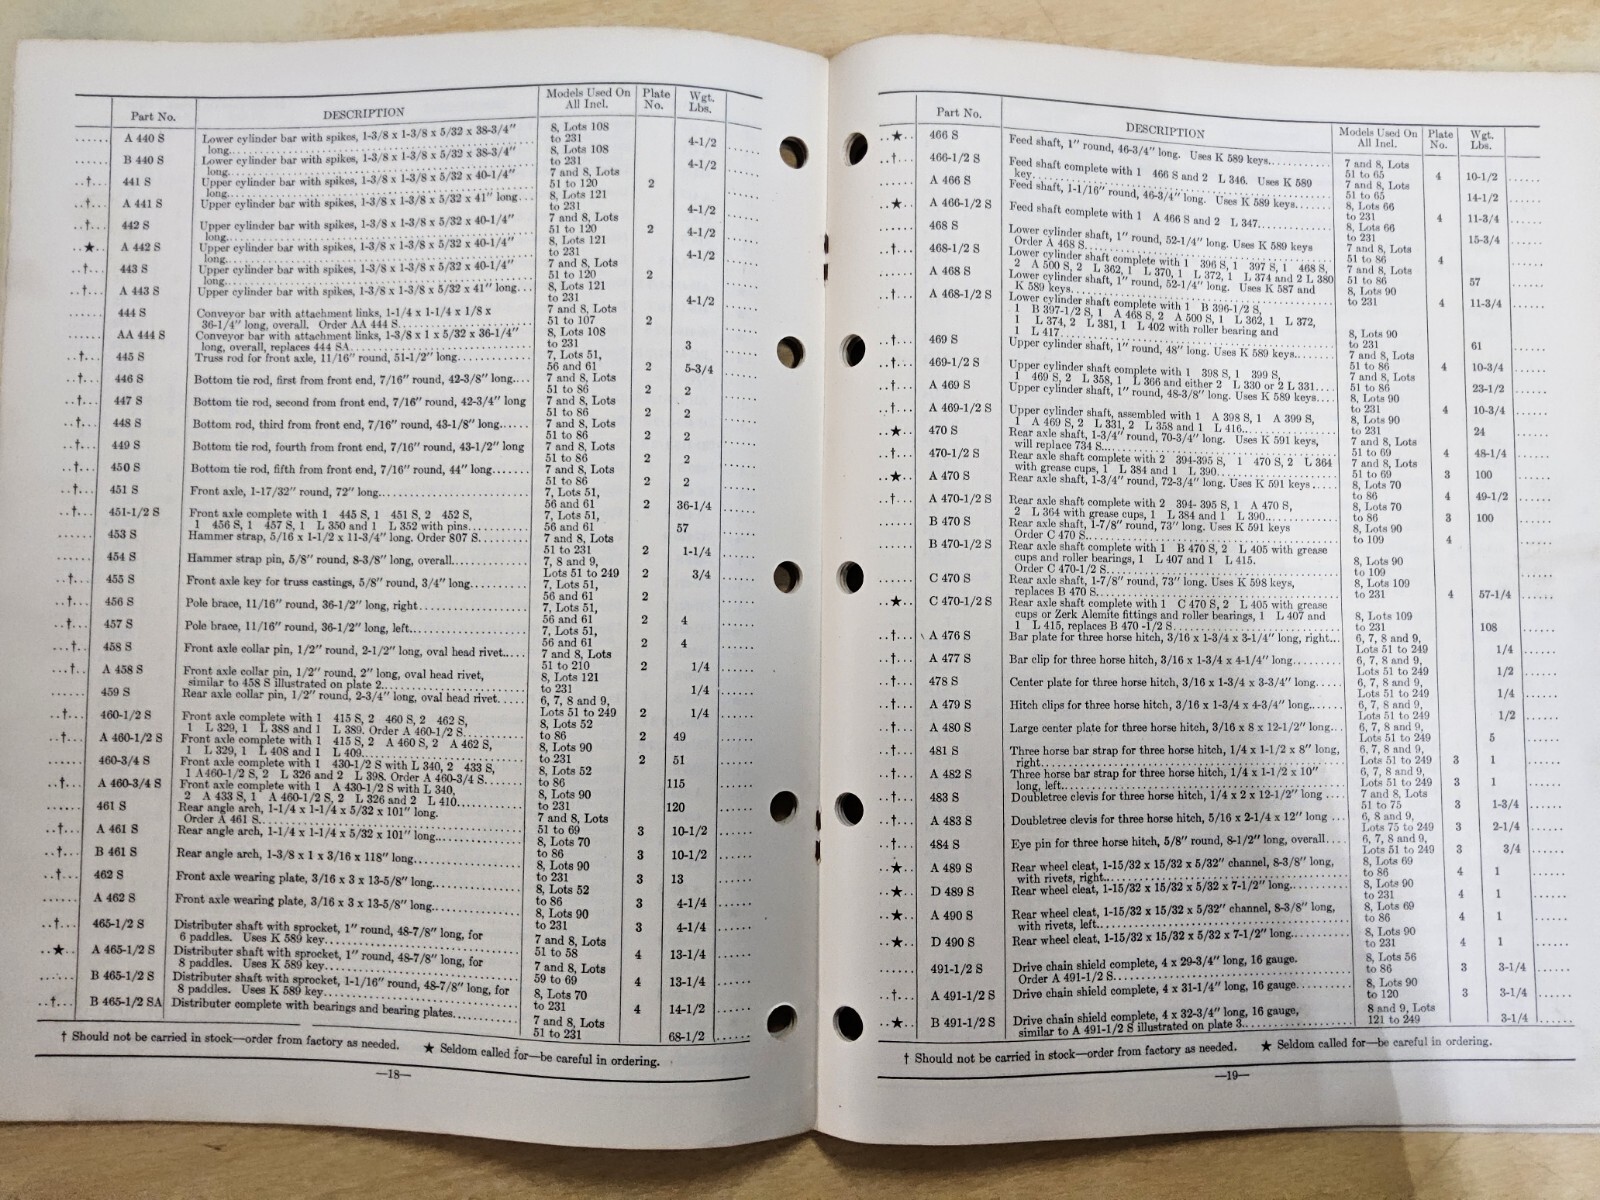 Part No. DESCRIPTION Models Used On All Incl. Plate No. Wgt. Lbs.
...... A 440 S Lower cylinder bar with spikes, 1-3/8 x 1-3/8 x 5/32 x 38-3/4″ 8, Lots 108
long.......... to 231 4-1/2 ......
...... B 440 S Lower cylinder bar with spikes, 1-3/8 x 1-3/8 x 5/32 x 38-3/4″ 8, Lots 108
long.......... to 231 4-1/2 ......
..†... 441 S Upper cylinder bar with spikes, 1-3/8 x 1-3/8 x 5/32 x 40-1/4″ 7 and 8, Lots
long.......... 51 to 120 2 ......
..†... A 441 S Upper cylinder bar with spikes, 1-3/8 x 1-3/8 x 5/32 x 41″ long... 8, Lots 121
to 231 4-1/2 ......
..†... 442 S Upper cylinder bar with spikes, 1-3/8 x 1-3/8 x 5/32 x 40-1/4″ 7 and 8, Lots
long.......... 51 to 120 2 4-1/2 ......
..★.. A 442 S Upper cylinder bar with spikes, 1-3/8 x 1-3/8 x 5/32 x 40-1/4″ 8, Lots 121
long.......... to 231 4-1/2 ......
..†... 443 S Upper cylinder bar with spikes, 1-3/8 x 1-3/8 x 5/32 x 40-1/4″ 7 and 8, Lots
long.......... 51 to 120 2 ......
..†... A 443 S Upper cylinder bar with spikes, 1-3/8 x 1-3/8 x 5/32 x 41″ long... 8, Lots 121
to 231 4-1/2 ......
...... 444 S Conveyor bar with attachment links, 1-1/4 x 1-1/4 x 1/8 x 7 and 8, Lots
36-1/4″ long, overall. Order AA 444 S.......... 51 to 107 2 ......
...... AA 444 S Conveyor bar with attachment links, 1-3/8 x 1 x 5/32 x 36-1/4″ 8, Lots 108
long, overall, replaces 444 SA.......... to 231 3 ......
..†... 445 S Truss rod for front axle, 11/16″ round, 51-1/2″ long.......... 7, Lots 51,
56 and 61 2 5-3/4 ......
..†... 446 S Bottom tie rod, first from front end, 7/16″ round, 42-3/8″ long.... 7 and 8, Lots
51 to 86 2 2 ......
..†... 447 S Bottom tie rod, second from front end, 7/16″ round, 42-3/4″ long 7 and 8, Lots
51 to 86 2 2 ......
..†... 448 S Bottom rod, third from front end, 7/16″ round, 43-1/8″ long...... 7 and 8, Lots
51 to 86 2 2 ......
..†... 449 S Bottom tie rod, fourth from front end, 7/16″ round, 43-1/2″ long 7 and 8, Lots
51 to 86 2 2 ......
..†... 450 S Bottom tie rod, fifth from front end, 7/16″ round, 44″ long....... 7 and 8, Lots
51 to 86 2 2 ......
..†... 451 S Front axle, 1-17/32″ round, 72″ long.......... 7, Lots 51,
56 and 61 2 36-1/4 ......
..†... 451-1/2 S Front axle complete with 1 445 S, 1 451 S, 2 452 S, 7, Lots 51,
1 456 S, 1 457 S, 1 L 350 and 1 L 352 with pins.......... 56 and 61 57 ......
...... 453 S Hammer strap, 5/16 x 1-1/2 x 11-3/4″ long. Order 807 S.......... 7 and 8, Lots
51 to 231 2 1-1/4 ......
...... 454 S Hammer strap pin, 5/8″ round, 8-3/8″ long, overall.......... 7, 8 and 9,
Lots 51 to 249 2 3/4 ......
..†... 455 S Front axle key for truss castings, 5/8″ round, 3/4″ long.......... 7, Lots 51,
56 and 61 2 ......
..†... 456 S Pole brace, 11/16″ round, 36-1/2″ long, right.......... 7, Lots 51,
56 and 61 2 4 ......
..†... 457 S Pole brace, 11/16″ round, 36-1/2″ long, left.......... 7, Lots 51,
56 and 61 2 4 ......
..†... 458 S Front axle collar pin, 1/2″ round, 2-1/2″ long, oval head rivet..... 7 and 8, Lots
51 to 210 2 1/4 ......
..†... A 458 S Front axle collar pin, 1/2″ round, 2″ long, oval head rivet, 8, Lots 121
similar to 458 S illustrated on plate 2.......... to 231 1/4 ......
...... 459 S Rear axle collar pin, 1/2″ round, 2-3/4″ long, oval head rivet..... 6, 7, 8 and 9,
Lots 51 to 249 2 1/4 ......
..†... 460-1/2 S Front axle complete with 1 415 S, 2 460 S, 2 462 S, 8, Lots 52
1 L 329, 1 L 388 and 1 L 389. Order A 460-1/2 S.......... to 86 2 49 ......
..†... A 460-1/2 S Front axle complete with 1 415 S, 2 A 460 S, 2 A 462 S, 8, Lots 90
1 L 329, 1 L 408 and 1 L 409.......... to 231 2 51 ......
...... 460-3/4 S Front axle complete with 1 430-1/2 S with L 340, 2 433 S, 8, Lots 52
1 A460-1/2 S, 2 L 326 and 2 L 398. Order A 460-3/4 S..... to 86 115 ......
..†... A 460-3/4 S Front axle complete with 1 A 430-1/2 S with L 340, 8, Lots 90
2 A 433 S, 1 A 460-1/2 S, 2 L 326 and 2 L 410.......... to 231 120 ......
...... 461 S Rear angle arch, 1-1/4 x 1-1/4 x 5/32 x 101″ long. 7 and 8, Lots
Order A 461 S.......... 51 to 69 3 10-1/2 ......
..†... A 461 S Rear angle arch, 1-1/4 x 1-1/4 x 5/32 x 101″ long.......... 8, Lots 70
to 86 3 10-1/2 ......
..†... B 461 S Rear angle arch, 1-3/8 x 1 x 3/16 x 118″ long.......... 8, Lots 90
to 231 3 13 ......
..†... 462 S Front axle wearing plate, 3/16 x 3 x 13-5/8″ long.......... 8, Lots 52
to 86 3 4-1/4 ......
...... A 462 S Front axle wearing plate, 3/16 x 3 x 13-5/8″ long.......... 8, Lots 90
to 231 3 4-1/4 ......
..†... 465-1/2 S Distributer shaft with sprocket, 1″ round, 48-7/8″ long, for 7 and 8, Lots
6 paddles. Uses K 589 key.......... 51 to 58 4 13-1/4 ......
..★.. A 465-1/2 S Distributer shaft with sprocket, 1″ round, 48-7/8″ long, for 7 and 8, Lots
8 paddles. Uses K 589 key.......... 59 to 69 4 13-1/4 ......
...... B 465-1/2 S Distributer shaft with sprocket, 1-1/16″ round, 48-7/8″ long, for 8, Lots 70
8 paddles. Uses K 589 key.......... to 231 4 14-1/2 ......
..†... B 465-1/2 SA Distributer complete with bearings and bearing plates.......... 7 and 8, Lots
51 to 231 68-1/2 ......
† Should not be carried in stock—order from factory as needed. ★ Seldom called for—be careful in ordering.
—18—
Part No. DESCRIPTION Models Used On All Incl. Plate No. Wgt. Lbs.
..★.. 466 S Feed shaft, 1″ round, 46-3/4″ long. Uses K 589 keys.......... 7 and 8, Lots
51 to 65 4 10-1/2 ......
..†... 466-1/2 S Feed shaft complete with 1 466 S and 2 L 346. Uses K 589 7 and 8, Lots
key.......... 51 to 65 14-1/2 ......
...... A 466 S Feed shaft, 1-1/16″ round, 46-3/4″ long. Uses K 589 keys....... 8, Lots 66
to 231 4 11-3/4 ......
..★.. A 466-1/2 S Feed shaft complete with 1 A 466 S and 2 L 347.......... 8, Lots 66
to 231 15-3/4 ......
...... 468 S Lower cylinder shaft, 1″ round, 52-1/4″ long. Uses K 589 keys 7 and 8, Lots
Order A 468 S.......... 51 to 86 4 ......
..†... 468-1/2 S Lower cylinder shaft complete with 1 396 S, 1 397 S, 1 468 S, 7 and 8, Lots
2 A 500 S, 2 L 362, 1 L 370, 1 L 372, 1 L 374 and 2 L 380 51 to 86 57 ......
...... A 468 S Lower cylinder shaft, 1″ round, 52-1/4″ long. Uses K 587 and 8, Lots 90
K 589 keys.......... to 231 4 11-3/4 ......
..†... A 468-1/2 S Lower cylinder shaft complete with 1 B 396-1/2 S,
1 B 397-1/2 S, 1 A 468 S, 2 A 500 S, 1 L 362, 1 L 372,
1 L 374, 2 L 381, 1 L 402 with roller bearing and 8, Lots 90
1 L 417.......... to 231 61 ......
..†... 469 S Upper cylinder shaft, 1″ round, 48″ long. Uses K 589 keys....... 7 and 8, Lots
51 to 86 4 10-3/4 ......
..†... 469-1/2 S Upper cylinder shaft complete with 1 398 S, 1 399 S, 7 and 8, Lots
1 469 S, 2 L 358, 1 L 366 and either 2 L 330 or 2 L 331.... 51 to 86 23-1/2 ......
..†... A 469 S Upper cylinder shaft, 1″ round, 48-3/8″ long. Uses K 589 keys.... 8, Lots 90
to 231 4 10-3/4 ......
..†... A 469-1/2 S Upper cylinder shaft, assembled with 1 A 398 S, 1 A 399 S, 8, Lots 90
1 A 469 S, 2 L 331, 2 L 358 and 1 L 416.......... to 231 24 ......
..★.. 470 S Rear axle shaft, 1-3/4″ round, 70-3/4″ long. Uses K 591 keys, 7 and 8, Lots
will replace 734 S.......... 51 to 69 4 48-1/4 ......
..†... 470-1/2 S Rear axle shaft complete with 2 394-395 S, 1 470 S, 2 L 364 7 and 8, Lots
with grease cups, 1 L 384 and 1 L 390.......... 51 to 69 3 100 ......
..★.. A 470 S Rear axle shaft, 1-3/4″ round, 72-3/4″ long. Uses K 591 keys..... 8, Lots 70
to 86 4 49-1/2 ......
..†... A 470-1/2 S Rear axle shaft complete with 2 394- 395 S, 1 A 470 S, 8, Lots 70
2 L 364 with grease cups, 1 L 384 and 1 L 390.......... to 86 3 100 ......
...... B 470 S Rear axle shaft, 1-7/8″ round, 73″ long. Uses K 591 keys 8, Lots 90
Order C 470 S.......... to 109 4 ......
...... B 470-1/2 S Rear axle shaft complete with 1 B 470 S, 2 L 405 with grease
cups and roller bearings, 1 L 407 and 1 L 415. 8, Lots 90
Order C 470-1/2 S.......... to 109 ......
...... C 470 S Rear axle shaft, 1-7/8″ round, 73″ long. Uses K 598 keys, 8, Lots 109
replaces B 470 S.......... to 231 4 57-1/4 ......
..★.. C 470-1/2 S Rear axle shaft complete with 1 C 470 S, 2 L 405 with grease
cups or Zerk Alemite fittings and roller bearings, 1 L 407 and 8, Lots 109
1 L 415, replaces B 470 -1/2 S.......... to 231 108 ......
..†... A 476 S Bar plate for three horse hitch, 3/16 x 1-3/4 x 3-1/4″ long, right... 6, 7, 8 and 9,
Lots 51 to 249 1/4 ......
..†... A 477 S Bar clip for three horse hitch, 3/16 x 1-3/4 x 4-1/4″ long.......... 6, 7, 8 and 9,
Lots 51 to 249 1/2 ......
..†... 478 S Center plate for three horse hitch, 3/16 x 1-3/4 x 3-3/4″ long..... 6, 7, 8 and 9,
Lots 51 to 249 1/4 ......
..†... A 479 S Hitch clips for three horse hitch, 3/16 x 1-3/4 x 4-3/4″ long...... 6, 7, 8 and 9,
Lots 51 to 249 1/2 ......
..†... A 480 S Large center plate for three horse hitch, 3/16 x 8 x 12-1/2″ long... 6, 7, 8 and 9,
Lots 51 to 249 5 ......
..†... 481 S Three horse bar strap for three horse hitch, 1/4 x 1-1/2 x 8″ long, 6, 7, 8 and 9,
right.......... Lots 51 to 249 3 1 ......
..†... A 482 S Three horse bar strap for three horse hitch, 1/4 x 1-1/2 x 10″ 6, 7, 8 and 9,
long, left.......... Lots 51 to 249 3 1 ......
..†... 483 S Doubletree clevis for three horse hitch, 1/4 x 2 x 12-1/2″ long .... 7 and 8, Lots
51 to 75 3 1-3/4 ......
..†... A 483 S Doubletree clevis for three horse hitch, 5/16 x 2-1/4 x 12″ long ... 6, 8 and 9,
Lots 75 to 249 3 2-1/4 ......
..†... 484 S Eye pin for three horse hitch, 5/8″ round, 8-1/2″ long, overall..... 6, 7, 8 and 9,
Lots 51 to 249 3 3/4 ......
..★.. A 489 S Rear wheel cleat, 1-15/32 x 15/32 x 5/32″ channel, 8-3/8″ long, 8, Lots 69
with rivets, right.......... to 86 4 1 ......
..★.. D 489 S Rear wheel cleat, 1-15/32 x 15/32 x 5/32 x 7-1/2″ long.......... 8, Lots 90
to 231 4 1 ......
..★.. A 490 S Rear wheel cleat, 1-15/32 x 15/32 x 5/32″ channel, 8-3/8″ long, 8, Lots 69
with rivets, left.......... to 86 4 1 ......
..★.. D 490 S Rear wheel cleat, 1-15/32 x 15/32 x 5/32 x 7-1/2″ long.......... 8, Lots 90
to 231 4 1 ......
...... 491-1/2 S Drive chain shield complete, 4 x 29-3/4″ long, 16 gauge. 8, Lots 56
Order A 491-1/2 S.......... to 86 3 3-1/4 ......
..†... A 491-1/2 S Drive chain shield complete, 4 x 31-1/4″ long, 16 gauge.......... 8, Lots 90
to 120 3 3-1/4 ......
..★.. B 491-1/2 S Drive chain shield complete, 4 x 32-3/4″ long, 16 gauge, 8 and 9, Lots
similar to A 491-1/2 S illustrated on plate 3.......... 121 to 249 3-1/4 ......
† Should not be carried in stock—order from factory as needed. ★ Seldom called for—be careful in ordering.
—19—